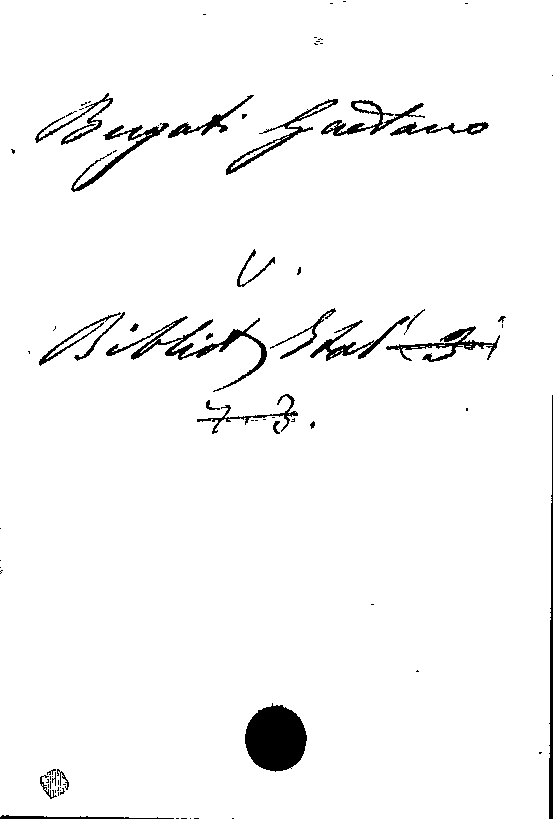 Bugati Gaetano
V.
Bibliot Ital (3)
7.3.